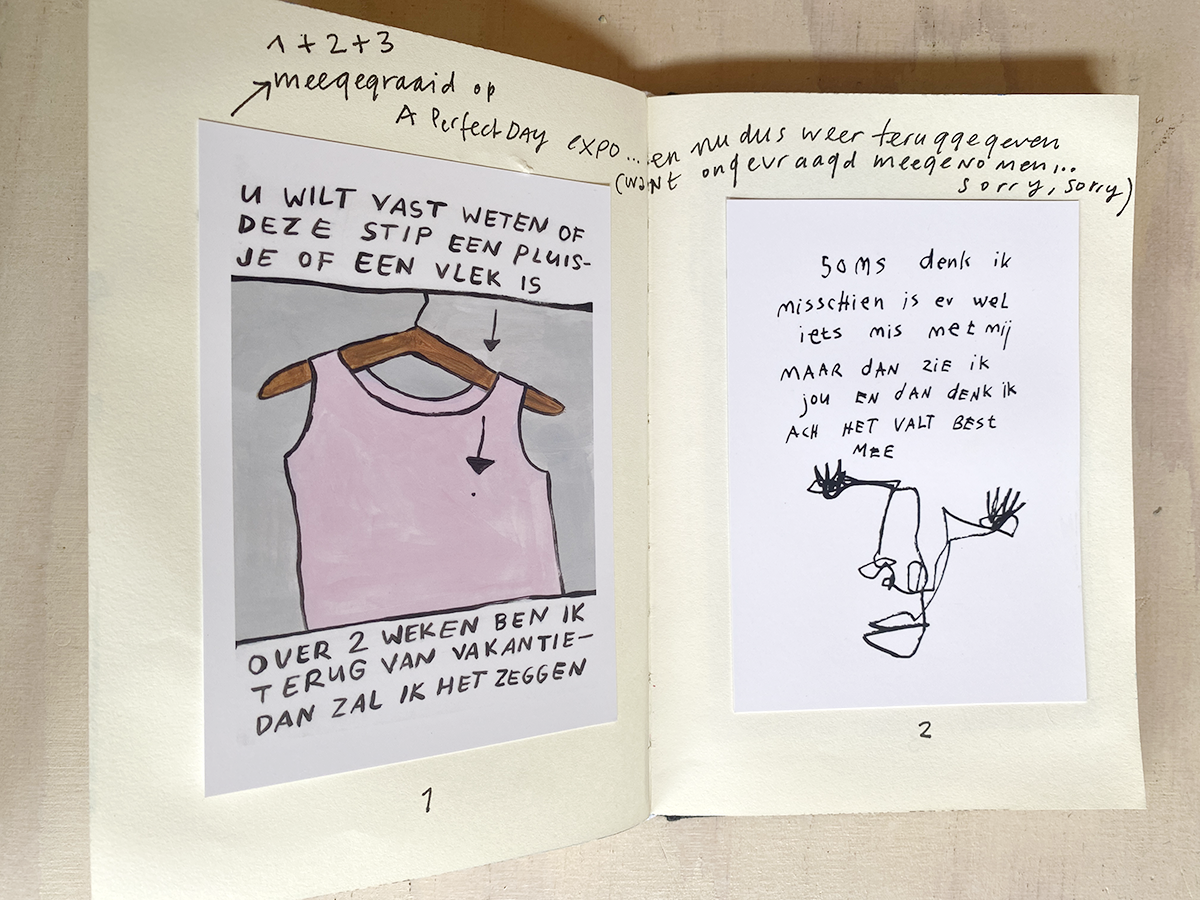 1+2+3
meegegraaid op
A PerfectDAY expo...
en nu dus weer teruggegeven
(want ongevraagd meegenomen...
sorry, sorry)
U WILT VAST WETEN OF
DEZE STIP EEN PLUIS-
JE OF EEN VLEK IS
OVER 2 WEKEN BEN IK
TERUG VAN VAKANTIE-
DAN ZAL IK HET ZEGGEN
1
SOMS denk ik
misscHien is er wel
iets mis met mij
MAAR dAN ZIE ik
jou EN dAN dENK ik
ACH HET VALT BEST
MEE
2